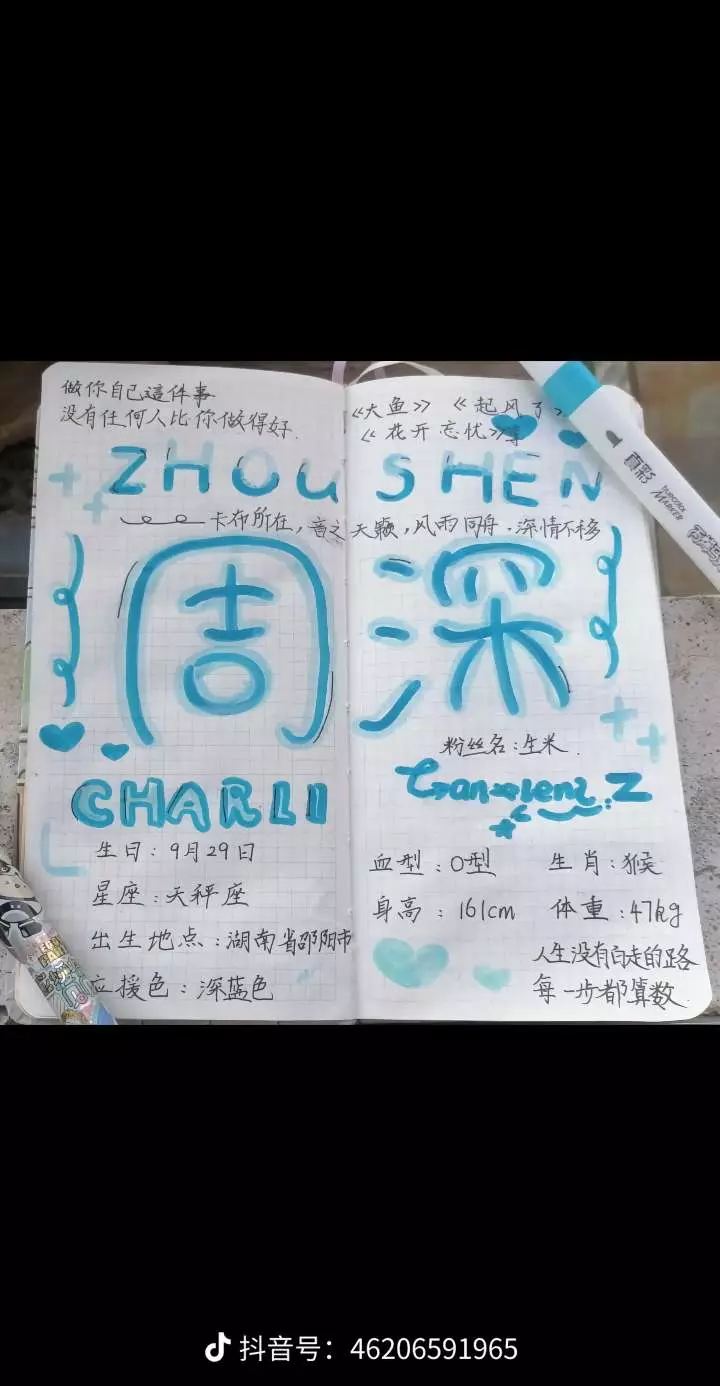 做你自己這件事
没有任何人比你做得好.
《大鱼》 《起风了》
《花开忘忧》等
ZHOU SHEN
卡布所在，音之天籁，风雨同舟，深情不移
周深
粉丝名：生米.
CHARLI
生日：9月29日
星座：天秤座
出生地点：湖南省邵阳市
应援色：深蓝色
血型：O型 生肖：猴
身高：161cm 体重：47kg
人生没有白走的路
每一步都算数.
真彩
MARKER
抖音号：46206591965